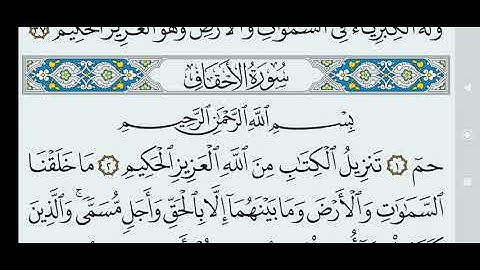 وَلَهُ ٱلْكِبْرِيَآءُ فِى ٱلسَّمَٰوَٰتِ وَٱلْأَرْضِ وَهُوَ ٱلْعَزِيزُ ٱلْحَكِيمُ ٣٧
سُورَةُ ٱلْأَحْقَافِ
بِسْمِ ٱللَّهِ ٱلرَّحْمَٰنِ ٱلرَّحِيمِ
حمٓ ١ تَنزِيلُ ٱلْكِتَٰبِ مِنَ ٱللَّهِ ٱلْعَزِيزِ ٱلْحَكِيمِ ٢ مَا خَلَقْنَا
ٱلسَّمَٰوَٰتِ وَٱلْأَرْضَ وَمَا بَيْنَهُمَآ إِلَّا بِٱلْحَقِّ وَأَجَلٍ مُّسَمًّى ۚ وَٱلَّذِينَ